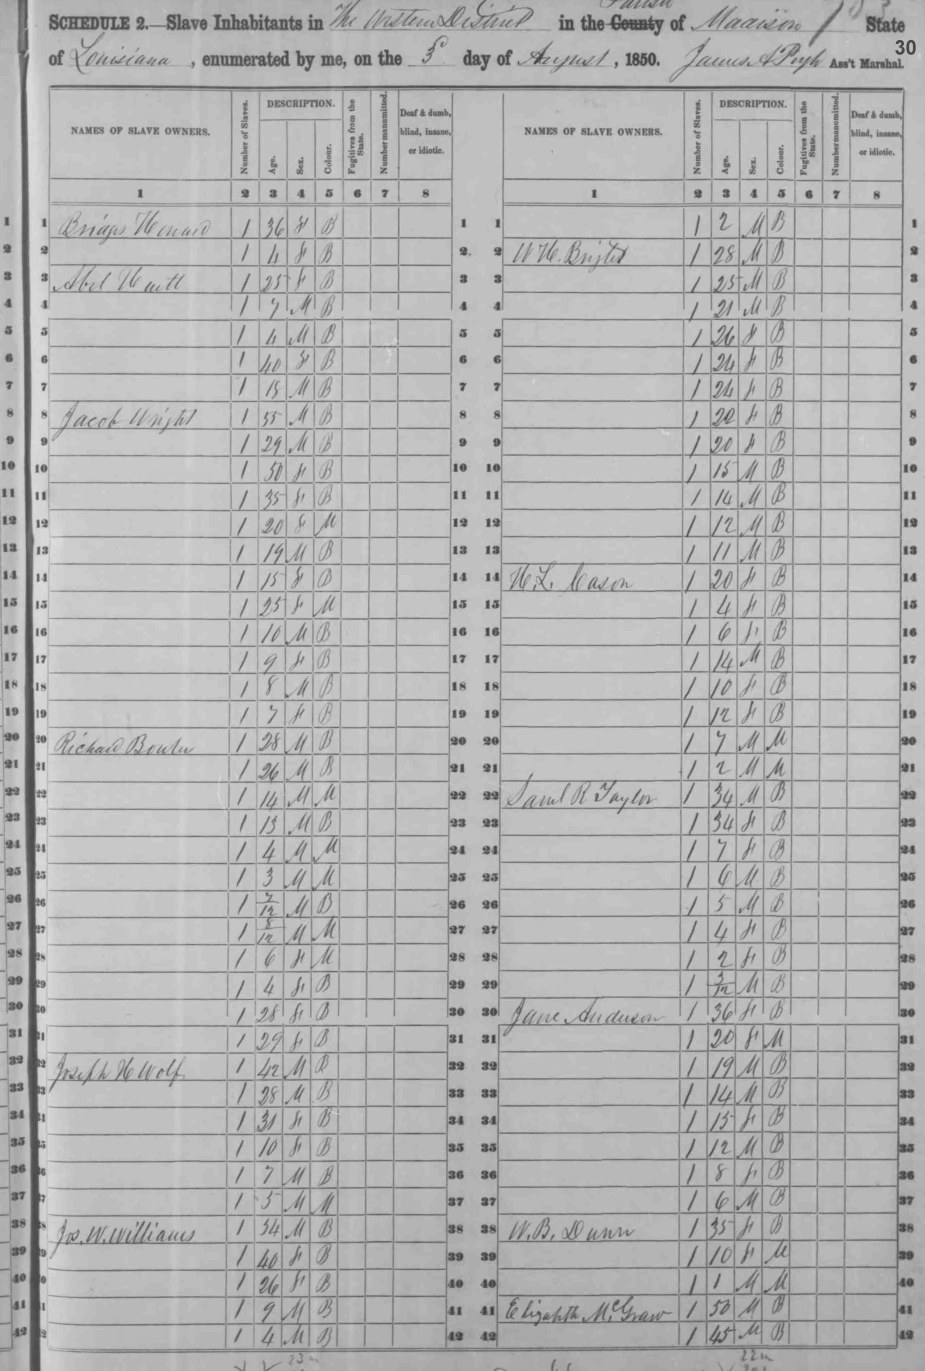 SCHEDULE 2.—Slave Inhabitants in The Western District in the County Parish of Madison State
of Louisiana, enumerated by me, on the 5 day of August, 1850. James A Pugh Ass't Marshal.
30
NAMES OF SLAVE OWNERS. Number of Slaves. DESCRIPTION. Age. Sex. Colour. Fugitives from the State. Number manumitted. Deaf & dumb, blind, insane, or idiotic.
NAMES OF SLAVE OWNERS. Number of Slaves. DESCRIPTION. Age. Sex. Colour. Fugitives from the State. Number manumitted. Deaf & dumb, blind, insane, or idiotic.
1 2 3 4 5 6 7 8 1 2 3 4 5 6 7 8
1 1 36 F B 1
2 1 4 F B 2
3 Abel 1 25 F B 3
4 1 7 M B 4
5 1 4 M B 5
6 1 40 F B 6
7 1 15 M B 7
8 Jacob Wright 1 55 M B 8
9 1 29 M B 9
10 1 50 F B 10
11 1 35 F B 11
12 1 20 F M 12
13 1 19 M B 13
14 1 15 F B 14
15 1 25 F M 15
16 1 10 M B 16
17 1 9 F B 17
18 1 8 M B 18
19 1 7 F B 19
20 Richard 1 28 M B 20
21 1 26 M B 21
22 1 14 M M 22
23 1 13 M B 23
24 1 4 M M 24
25 1 3 M M 25
26 1 M B 26
27 1 8/12 M M 27
28 1 6 F M 28
29 1 4 F B 29
30 1 28 F B 30
31 1 29 F B 31
32 Joseph H Wolf 1 42 M B 32
33 1 28 M B 33
34 1 31 F B 34
35 1 10 F B 35
36 1 7 M B 36
37 1 5 M M 37
38 Jos. W. Williams 1 34 M B 38
39 1 40 F B 39
40 1 26 F B 40
41 1 9 M B 41
42 1 4 M B 42
1 1 2 M B 1
2 W. H. Bright 1 28 M B 2
3 1 25 M B 3
4 1 21 M B 4
5 1 26 F B 5
6 1 24 F B 6
7 1 24 F B 7
8 1 22 F B 8
9 1 20 F B 9
10 1 15 M B 10
11 1 14 M B 11
12 1 12 M B 12
13 1 11 M B 13
14 H. L. Cason 1 20 F B 14
15 1 4 F B 15
16 1 6 F B 16
17 1 14 M B 17
18 1 10 F B 18
19 1 12 F B 19
20 1 7 M M 20
21 1 2 M M 21
22 Saml R Taylor 1 34 M B 22
23 1 34 F B 23
24 1 7 F B 24
25 1 6 M B 25
26 1 5 M B 26
27 1 4 F B 27
28 1 2 F B 28
29 1 M B 29
30 Jane Anderson 1 36 F B 30
31 1 20 F M 31
32 1 19 M B 32
33 1 14 M B 33
34 1 15 F B 34
35 1 12 M B 35
36 1 8 F B 36
37 1 6 M B 37
38 W. B. Dunn 1 35 F B 38
39 1 10 F M 39
40 1 1 M M 40
41 Elizabeth McGraw 1 50 M B 41
42 1 45 M B 42
23m 22m